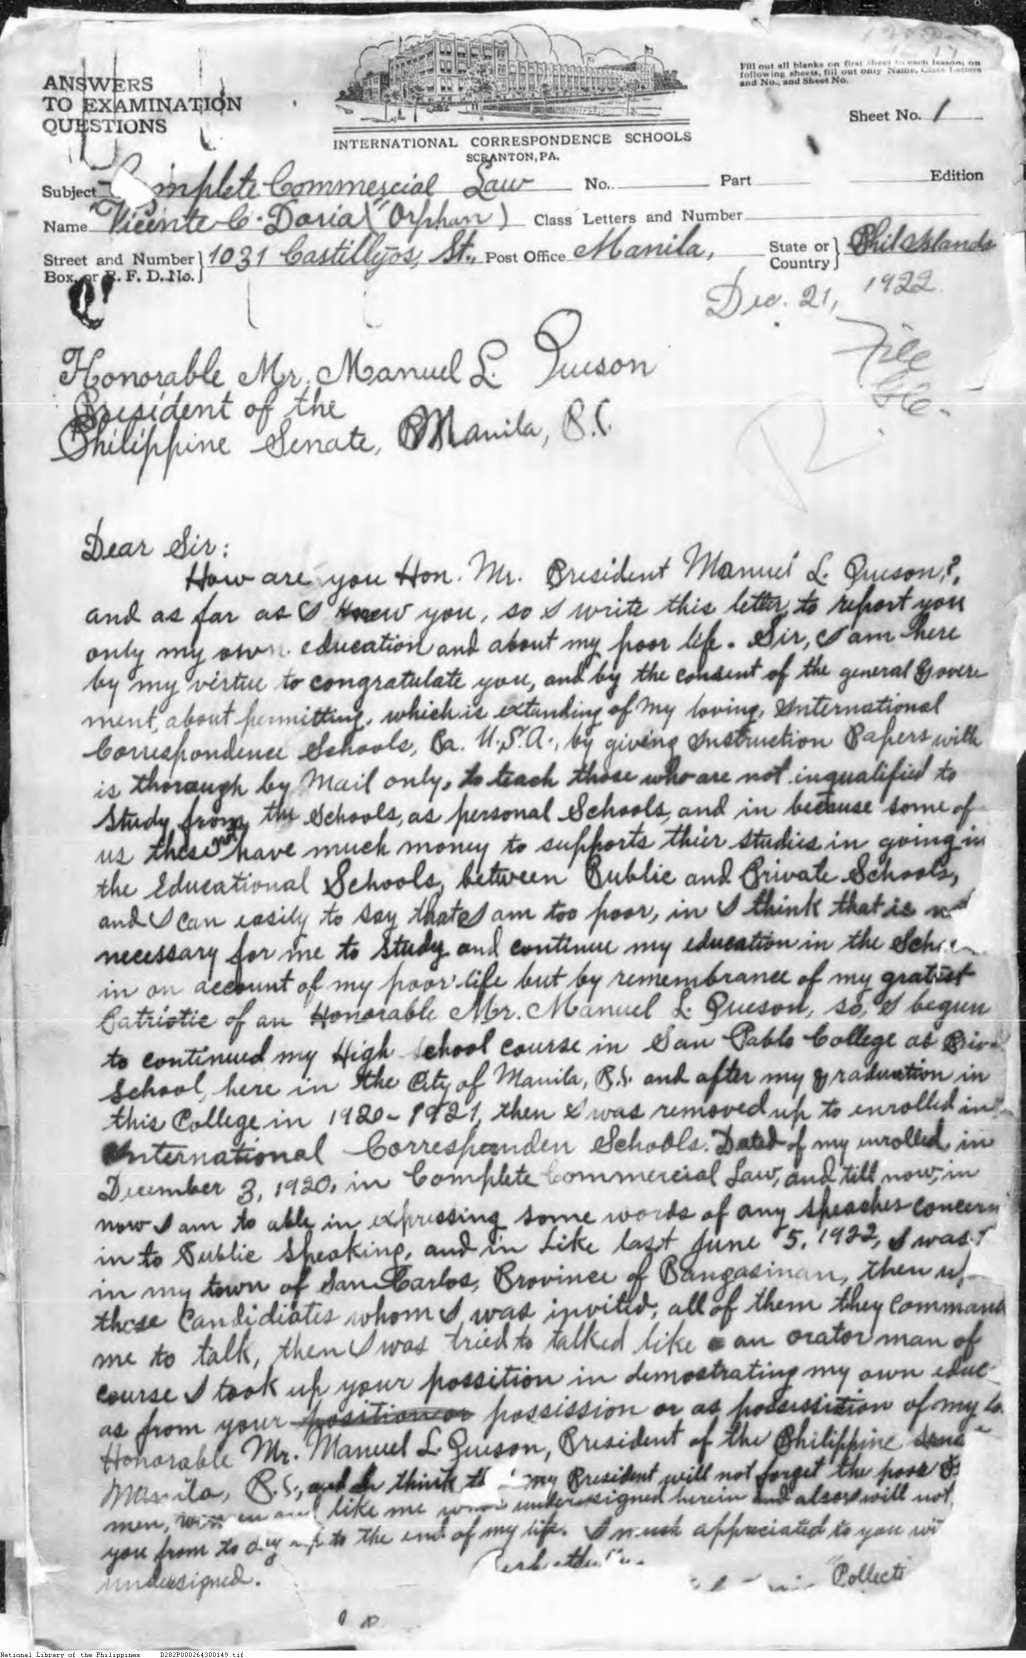 ANSWERS
TO EXAMINATION
QUESTIONS
Fill out all blanks on first sheet to each lesson; on
following sheets, fill out only Name, Class Letters
and No., and Sheet No.
Sheet No. 1
INTERNATIONAL CORRESPONDENCE SCHOOLS
SCRANTON, PA.
Subject Complete Commercial Law No. Part Edition
Name Vicente C. Doria ("Orphan") Class Letters and Number
Street and Number Box, or R. F. D. No. 1031 Castillejos, St., Post Office Manila, State or Country Phil. Islands
Dec. 21, 1922
File
Honorable Mr. Manuel L. Queson
President of the
Philippine Senate, Manila, P.I.
Dear Sir:
How are you Hon. Mr. President Manuel L. Queson?,
and as far as I knew you, so I write this letter, to report you
only my own education and about my poor life. Sir, I am here
by my virtue to congratulate you, and by the consent of the general Govern
ment, about permitting, which is extanding of my loving, International
Correspondence Schools, Pa. U.S.A., by giving Instruction Papers with
is thorough by Mail only, to teach those who are not inqualified to
study from the Schools, as personal Schools, and in because some of
us these not have much money to supports thier studies in going in
the Educational Schools, between Public and Private Schools,
and I can easily to say that I am too poor, in I think that is not
necessary for me to study and continue my education in the
in on account of my poor life but by remembrance of my
Patriotic of an Honorable Mr. Manuel L. Queson, so, I begun
to continued my High School course in San Pablo College as
School, here in the City of Manila, P.I. and after my graduation in
this College in 1920-1921, then I was removed up to enrolled in
International Corresponden Schools. Dated of my enrolled in
December 3, 1920, in Complete Commercial Law, and till now, in
now I am to able in expressing some words of any speaches concern
in to Public Speaking, and in Like last June 5, 1922, I was
in my town of San Carlos, Province of Pangasinan, then
those Candidiates whom I was invited, all of them they command
me to talk, then I was tried to talked like an orator man of
course I took up your possition in demostrating my own educ
as from your position or possission or as possission of my
Honorable Mr. Manuel L. Queson, President of the Philippine
Manila, P.I., and I think my President will not forget the poor
men, like me undersigned herein and also I will not
you from to day up to the end of my life. I much appreciated to you
undersigned.
National Library of the Philippines D282P000264300149.tif